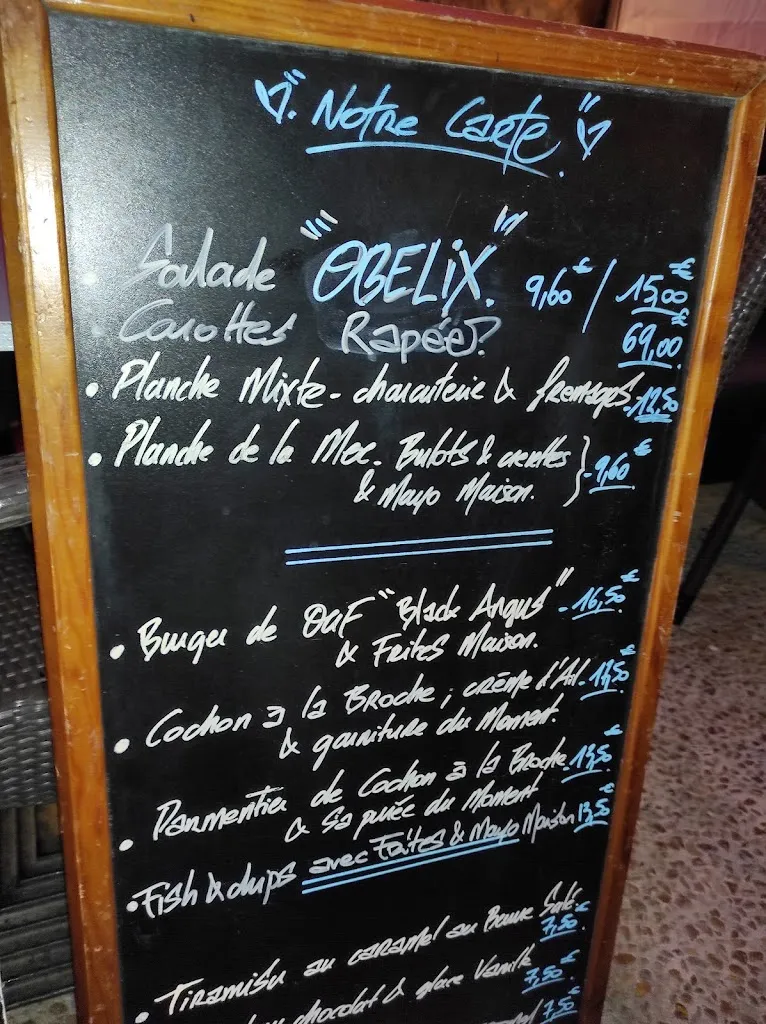 Notre Carte
• Salade "OBELiX" 9,60€ / 15,00€
• Carottes Rapées? 69,00€
• Planche Mixte - charcuterie & fromages - 12,50
• Planche de la Mer - Bulots & crevettes - 9,60€
& Mayo Maison.
• Burger de OUF "Black Angus" - 16,50€
& Frites Maison.
• Cochon à la Broche ; crème d'Ail -
& garniture du Moment.
• Parmentier de Cochon à la Broche
& sa purée du Moment
• Fish & chips avec Frites & Mayo Maison 13,50€
• Tiramisu au caramel au Beurre Salé.
7,50€
chocolat & glace Vanille 7,50€
7,50€